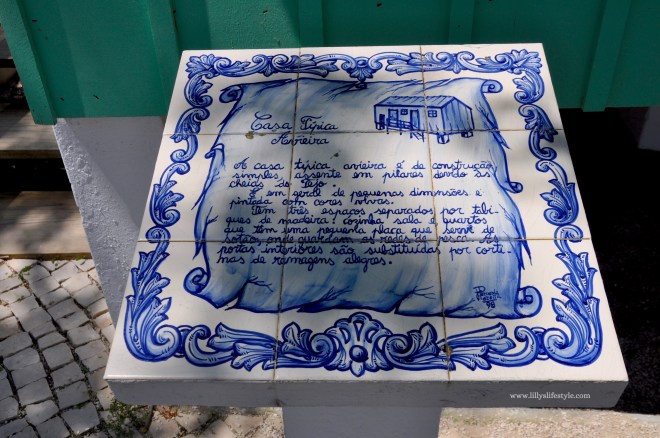 Casa Típica
Avieira
A casa típica avieira é de construção
simples, assente em pilares devido às
cheias do Tejo.
É em geral de pequenas dimensões e
pintada com cores vivas.
Têm três espaços separados por tabi-
ques de madeira: cozinha sala e quartos
que têm uma pequena placa que serve de
sotão, onde guardam as redes de pesca. As
portas interiores são substituídas por corti-
nas de ramagens alegres.
98
www.lillyslifestyle.com